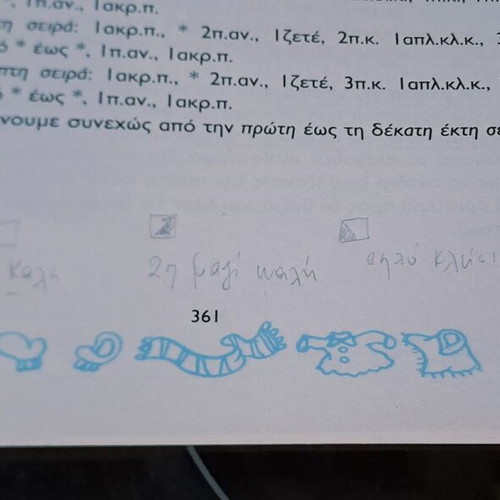 *, 1π.αν., 1ακρ.π.
τη σειρά: 1ακρ.π., * 2π.αν., 1ζετέ, 2π.κ. 1απλ.κλ.κ.,
* έως *, 1π.αν., 1ακρ.π.
πτη σειρά: 1ακρ.π., * 2π.αν., 1ζετέ, 3π.κ. 1απλ.κλ.κ.,
* έως *, 1π.αν., 1ακρ.π.
νουμε συνεχώς από την πρώτη έως τη δέκατη έκτη σε
καλη 2η μαζί καλή απλό κλήσι
361